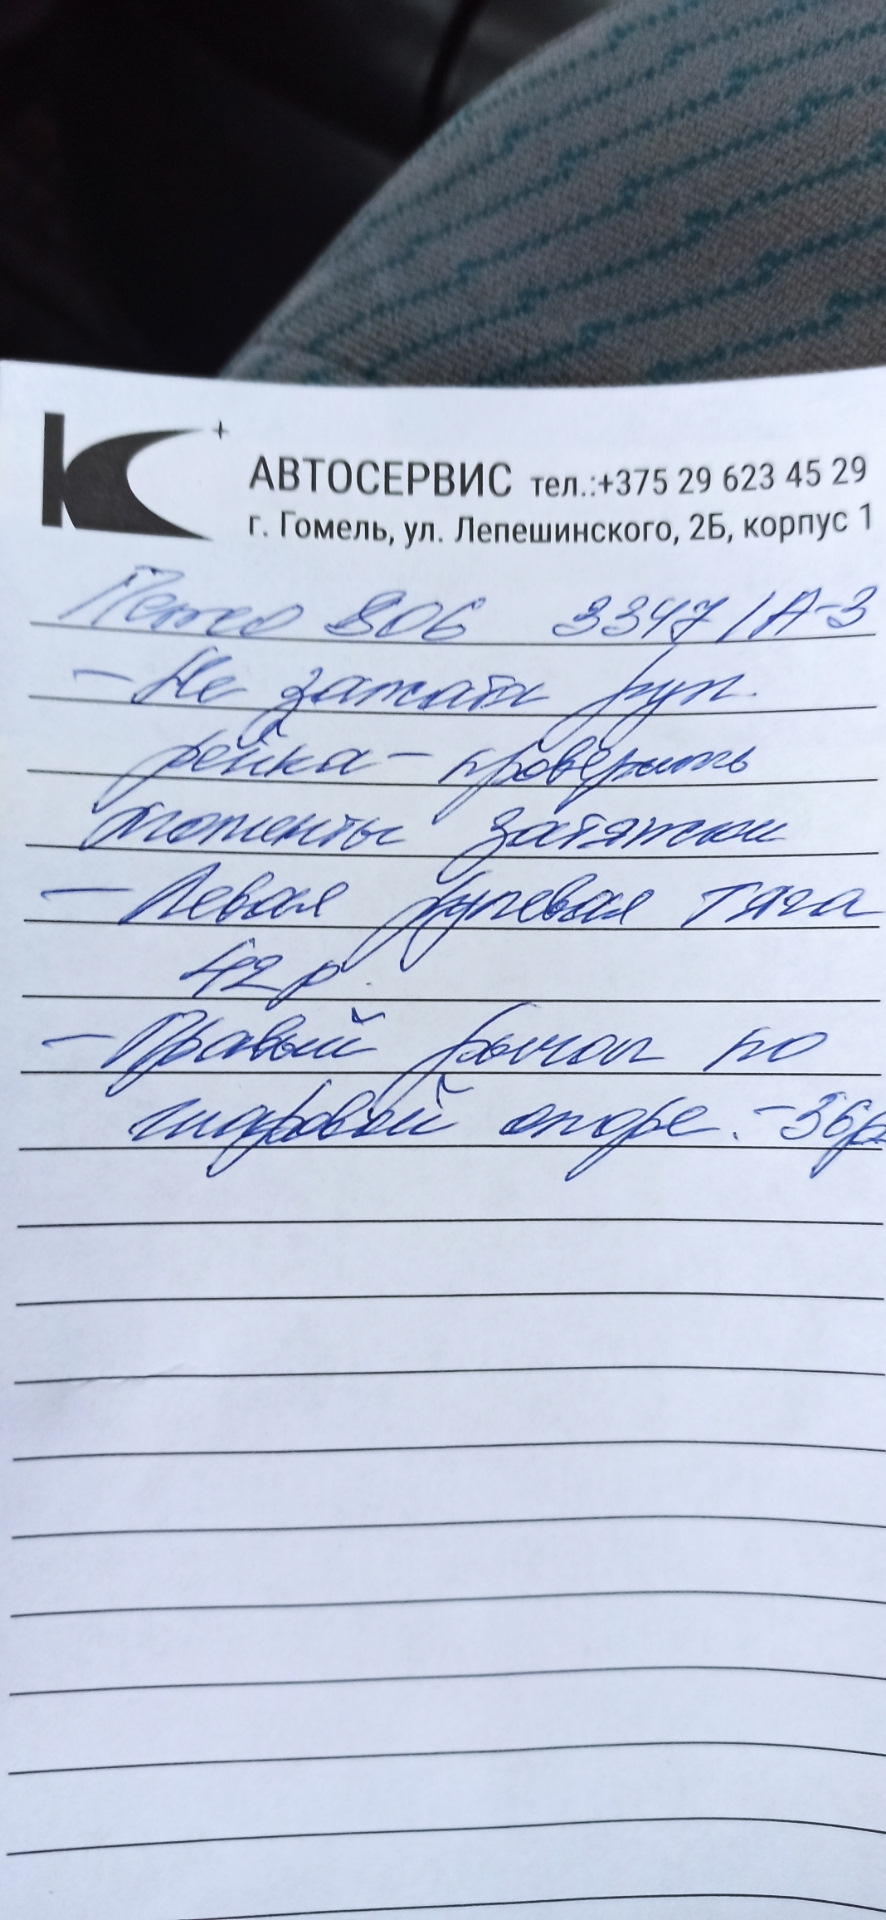 АВТОСЕРВИС тел.:+375 29 623 45 29
г. Гомель, ул. Лепешинского, 2Б, корпус 1
806 3347 IA-3
- Не зажата рул.
рейка - проверить
моменты затяжки
- Левая рулевая тяга
42р.
- Правый рычаг по
шаровой опоре. - 36р